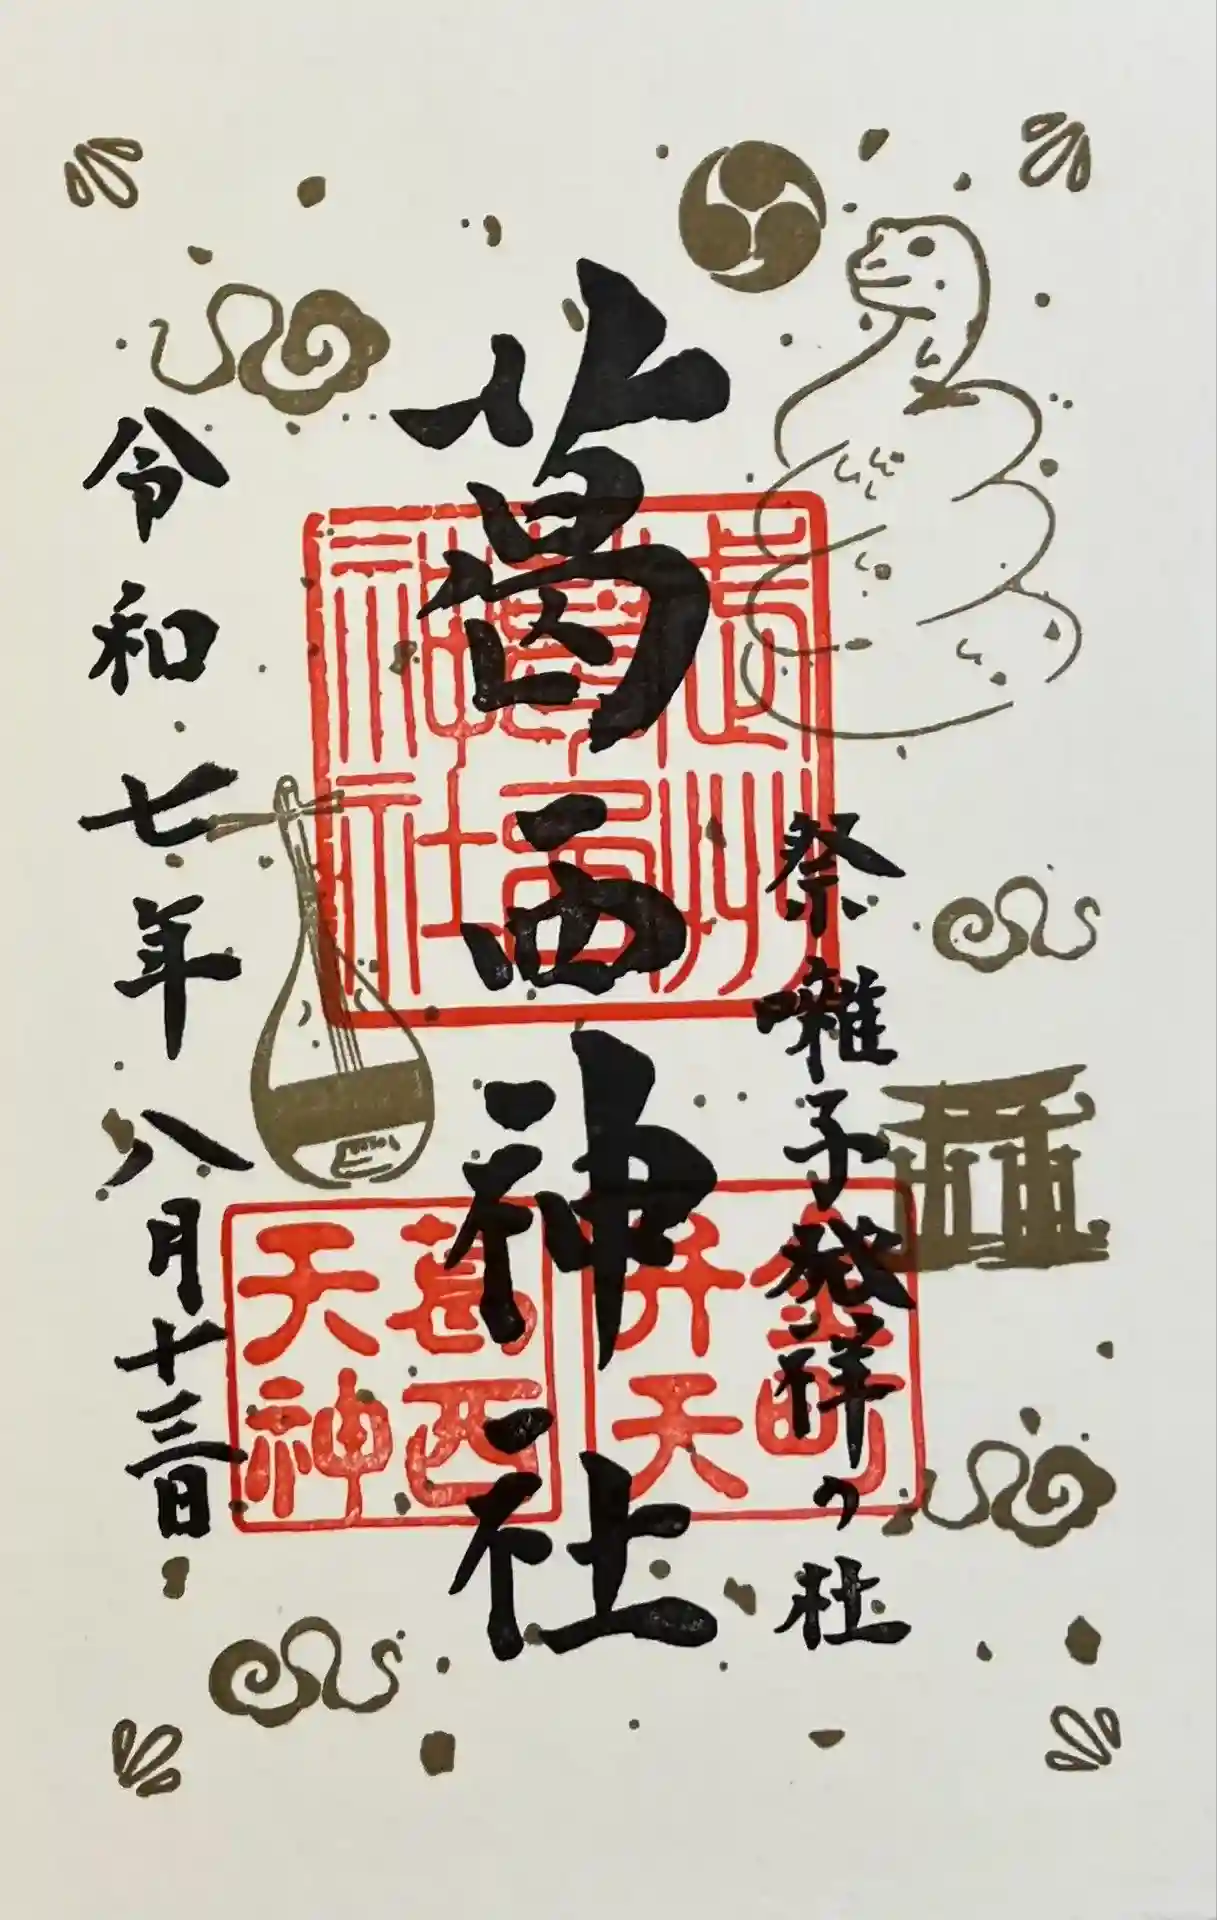 祭囃子発祥の社
葛西神社
令和七年八月十三日
武州
葛西
神社
金町
弁天
葛西
天神